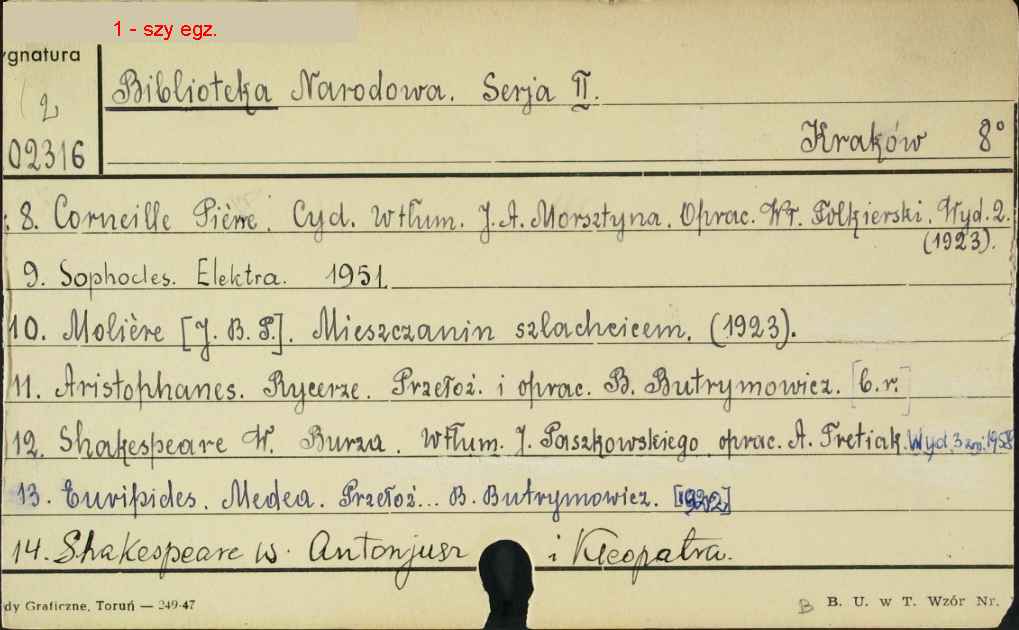 1 - szy egz.
ygnatura
2
02316
Biblioteka Narodowa. Serja II.
Kraków 8°
8. Corneille Pièrre. Cyd. W tłum. J. A. Morsztyna. Oprac. Wł. Folkierski. Wyd. 2.
(1923).
9. Sophocles. Elektra. 1951.
10. Molière [J. B. P.]. Mieszczanin szlachcicem. (1923).
11. Aristophanes. Rycerze. Przełoż. i oprac. B. Butrymowicz. [b.r.]
12. Shakespeare W. Burza. W tłum. J. Paszkowskiego oprac. A. Tretiak. Wyd. 3 zm. 1958
13. Euripides. Medea. Przełoż... B. Butrymowicz.
14. Shakespeare W. Antonjusz i Kleopatra.
dy Graficzne, Toruń — 249-47
B B. U. w T. Wzór Nr.